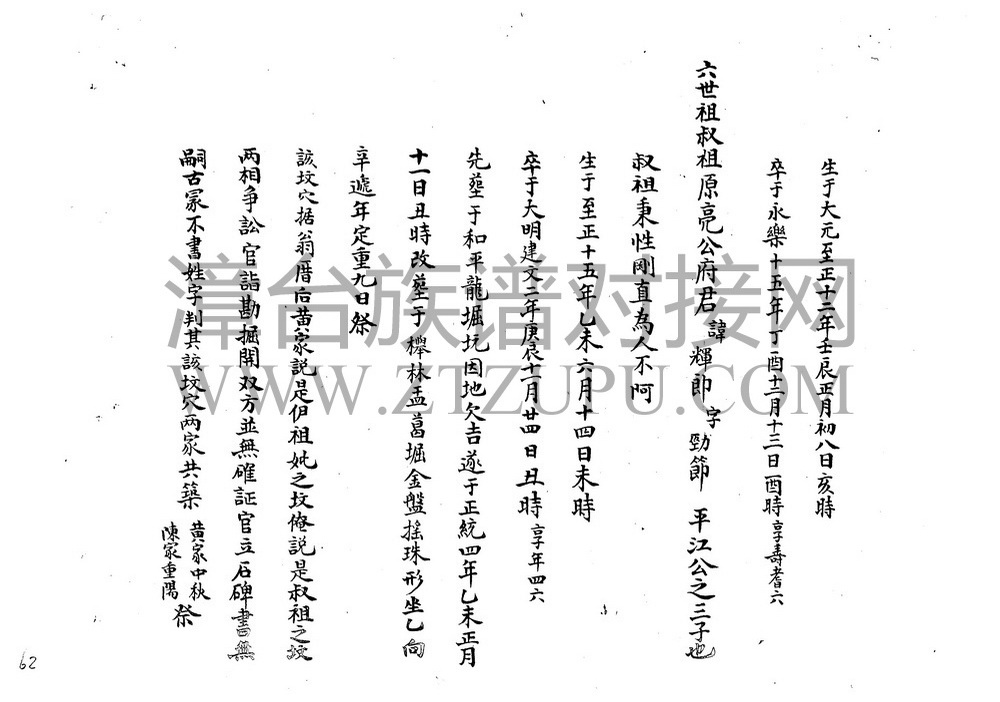 生于大元至正十二年壬辰正月初八日亥時
卒于永樂十五年丁酉十二月十三日酉時享壽耆六
六世祖叔祖原亮公府君諱輝郎字勁節平江公之三子也
叔祖秉性剛直為人不阿
生于至正十五年乙未六月十四日未時
卒于大明建文二年庚辰十一月廿四日丑時享年四六
先塟于和平龍堀坑因地欠吉遂于正統四年乙未正月
十一日丑時改塟于櫸林盂葛堀金盤搖珠形坐乙向
辛遞年定重九日祭
該坟穴据翁厝后黄家説是伊祖妣之坟俺説是叔祖之坟
两相争訟官詣勘掘開双方並無確証官立石碑書無
嗣古冢不書姓字判其該坟穴两家共築黄家中秋陳家重陽祭
漳台族谱对接网
WWW.ZTZUPU.COM
62